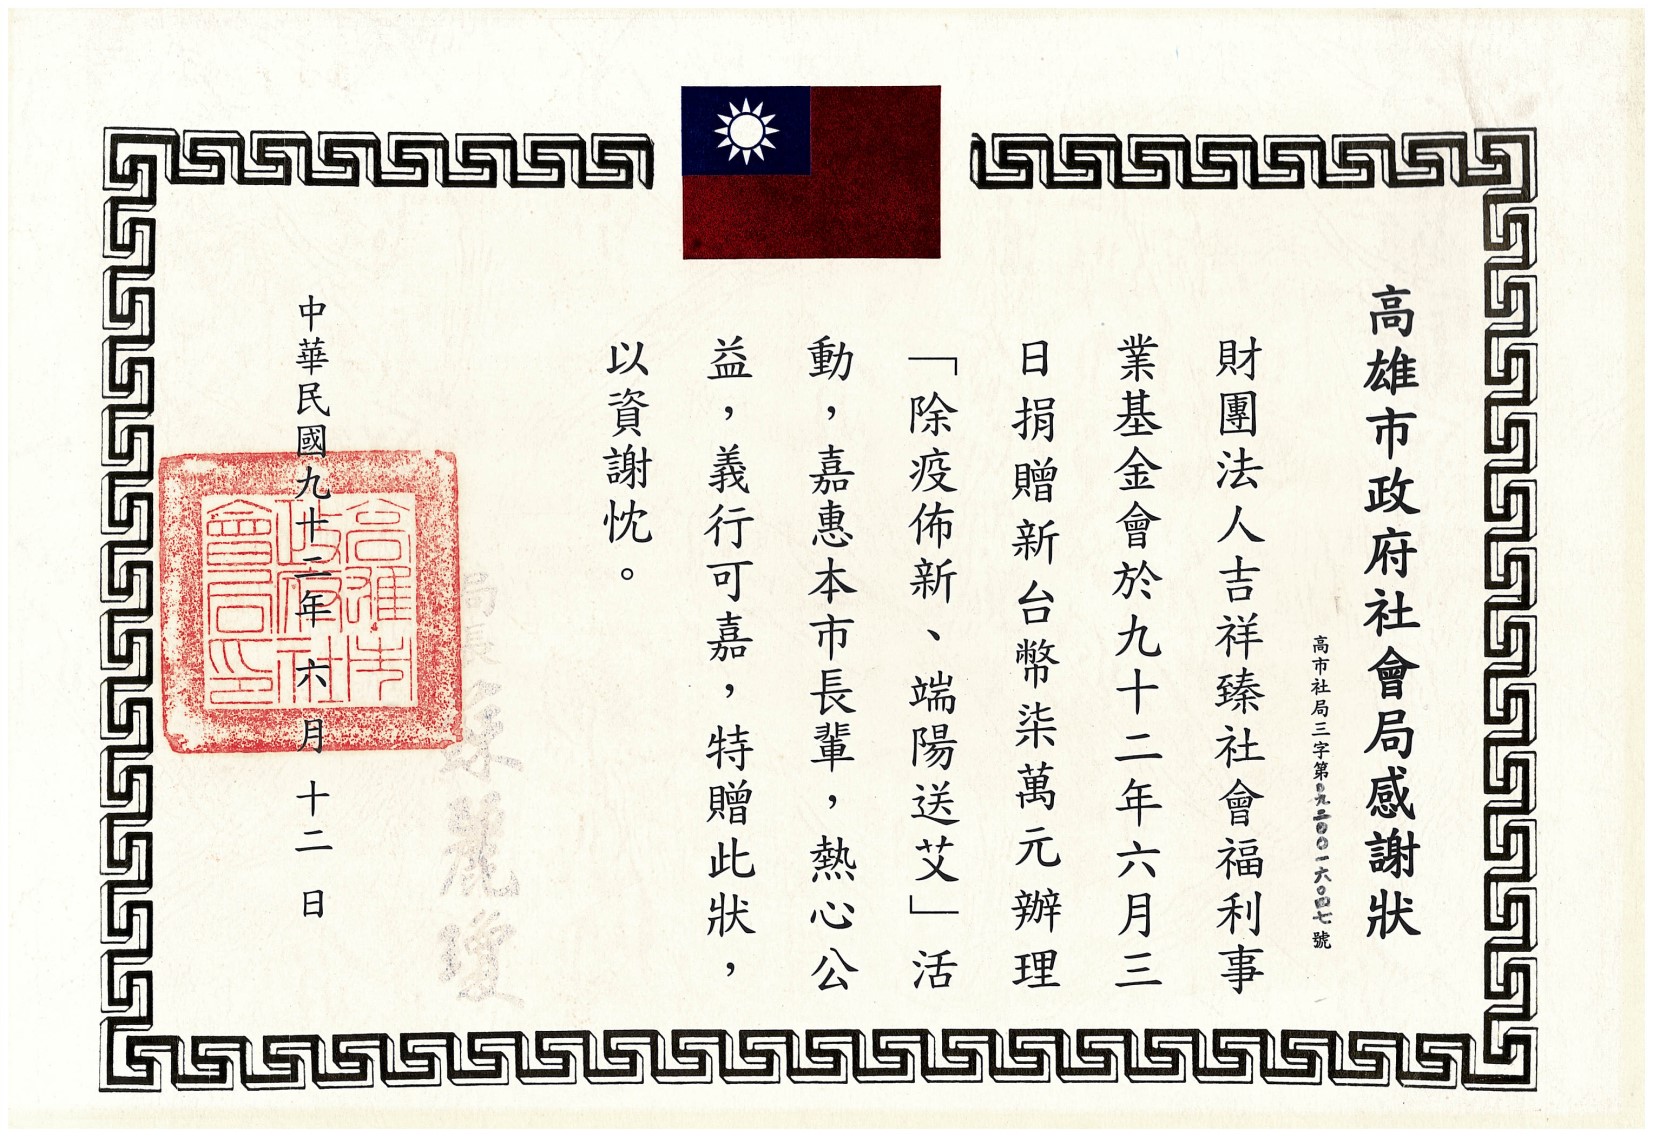 高雄市政府社會局感謝狀
高市社局三字第0九二00一六0四七號
財團法人吉祥臻社會福利事
業基金會於九十二年六月三
日捐贈新台幣柒萬元辦理
「除疫佈新、端陽送艾」活
動，嘉惠本市長輩，熱心公
益，義行可嘉，特贈此狀，
以資謝忱。
局長
麗瓊
中華民國九十二年六月十二日
高雄市
政府社
會局印